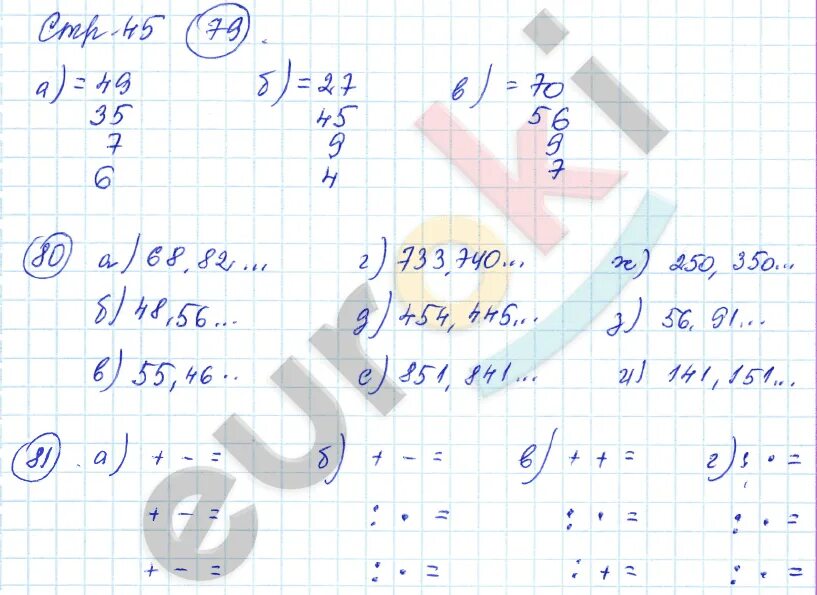 Стр. 45 79.
а) = 49 б) = 27 в) = 70
35 45 56
7 9 9
6 4 7
80 а) 68, 82... г) 733, 740... ж) 250, 350...
б) 48, 56... д) 454, 445... з) 56, 91...
в) 55, 46.. е) 851, 841... и) 141, 151...
81. а) + - = б) + - = в) + + = г) : · =
+ - = : · = : · = : · =
+ - = : · = : + = : · =
euroki